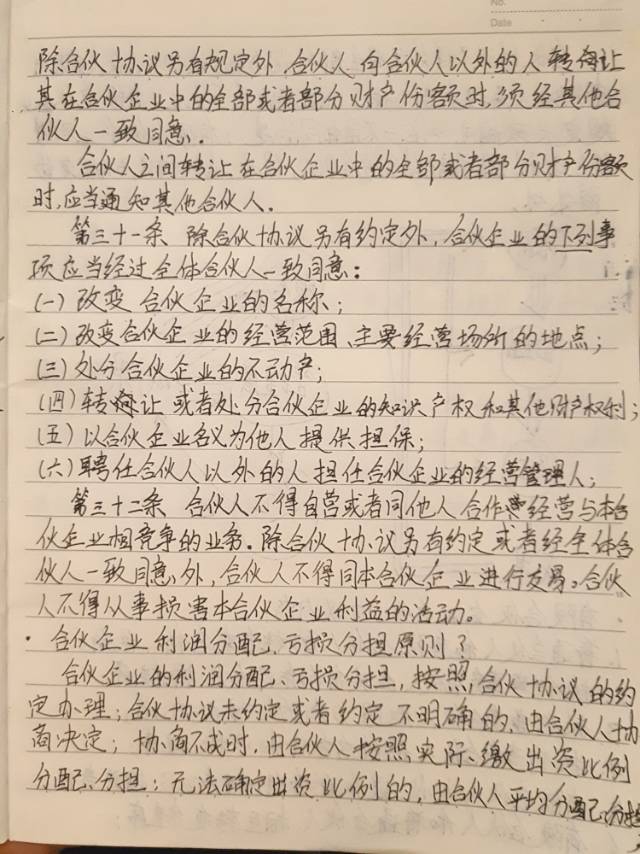 No.
Date
除合伙协议另有规定外 合伙人向合伙人以外的人转让
其在合伙企业中的全部或者部分财产份额时,须经其他合
伙人一致同意.
合伙人之间转让在合伙企业中的全部或者部分财产份额
时,应当通知其他合伙人.
第三十一条 除合伙协议另有约定外,合伙企业的下列事
项应当经过全体合伙人一致同意:
(一)改变合伙企业的名称;
(二)改变合伙企业的经营范围、主要经营场所的地点;
(三)处分合伙企业的不动产;
(四)转让或者处分合伙企业的知识产权和其他财产权利;
(五)以合伙企业名义为他人提供担保;
(六)聘任合伙人以外的人担任合伙企业的经营管理人;
第三十二条 合伙人不得自营或者同他人合作经营与本合
伙企业相竞争的业务.除合伙协议另有约定或者经全体合
伙人一致同意外,合伙人不得同本合伙企业进行交易。合伙
人不得从事损害本合伙企业利益的活动。
·合伙企业利润分配、亏损分担原则?
合伙企业的利润分配、亏损分担,按照合伙协议的约
定办理;合伙协议未约定或者约定不明确的,由合伙人协
商决定;协商不成时,由合伙人按照实际缴出资比例
分配、分担;无法确定出资比例的,由合伙人平均分配、分担